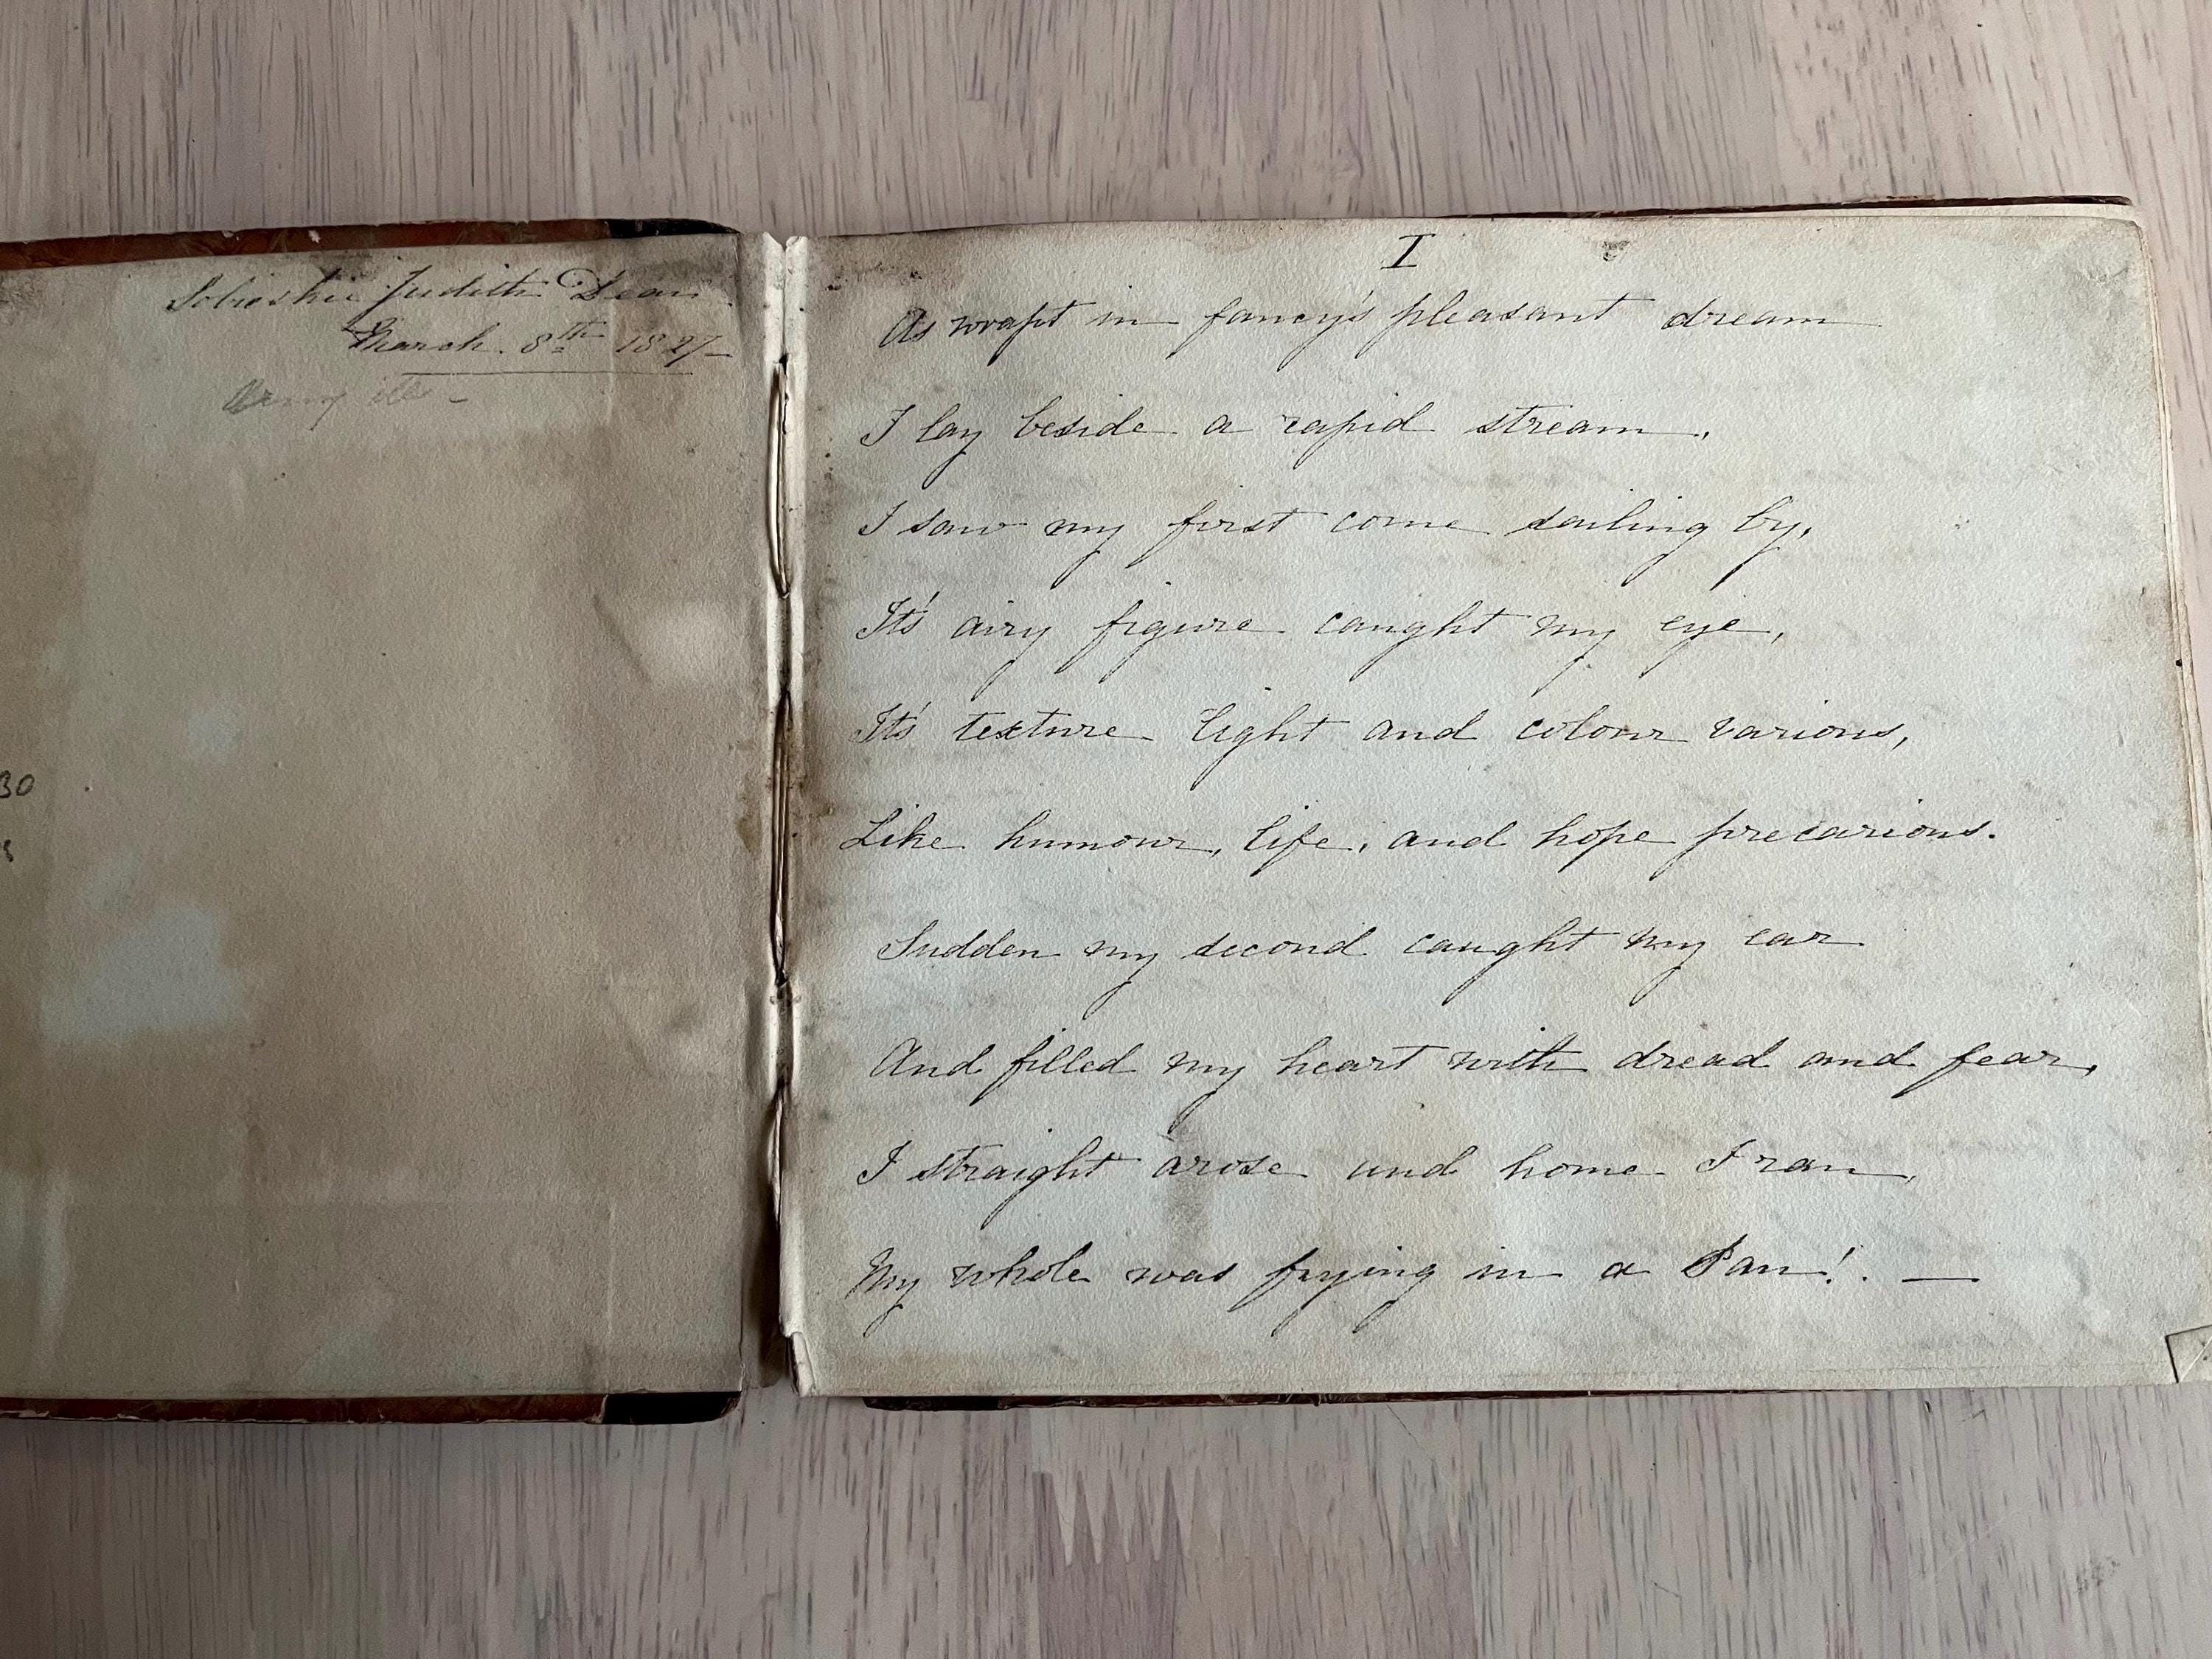 Sobieskie Judith Dean
March. 8th 1827
30
I
As wrapt in fancy's pleasant dream
I lay beside a rapid stream,
I saw my first come sailing by,
It's airy figure caught my eye,
It's texture light and colour various,
Like humour, life, and hope precarious.
Sudden my second caught my ear
And filled my heart with dread and fear,
I straight arose and home I ran,
My whole was frying in a Pan!. —